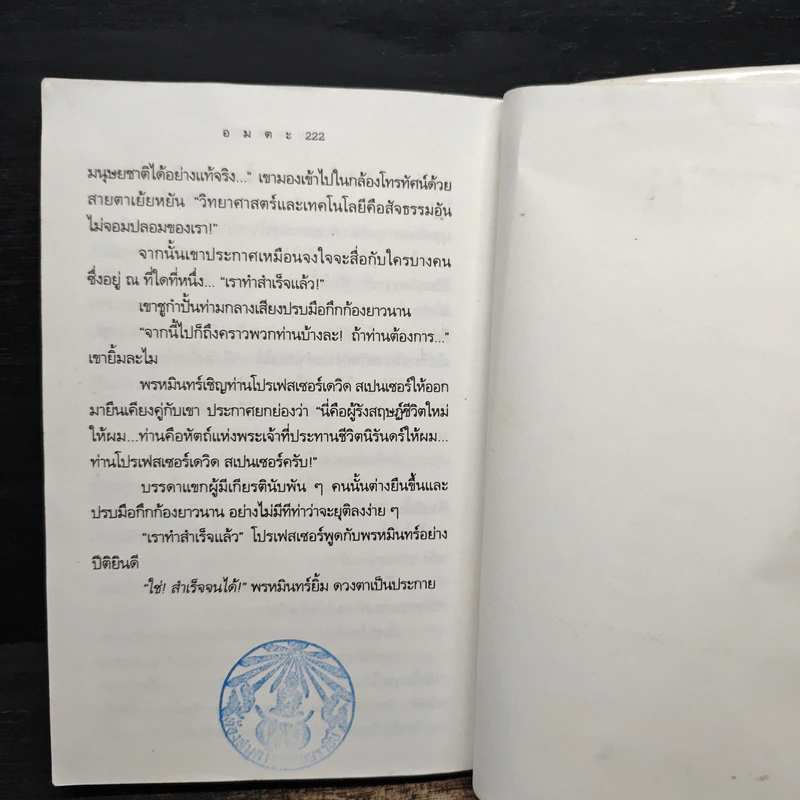 อ ม ต ะ 222
มนุษยชาติได้อย่างแท้จริง...” เขามองเข้าไปในกล้องโทรทัศน์ด้วย
สายตาเย้ยหยัน “วิทยาศาสตร์และเทคโนโลยีคือสัจธรรมอัน
ไม่จอมปลอมของเรา!”
จากนั้นเขาประกาศเหมือนจงใจจะสื่อกับใครบางคน
ซึ่งอยู่ ณ ที่ใดที่หนึ่ง... “เราทำสำเร็จแล้ว!”
เขาชูกำปั้นท่ามกลางเสียงปรบมือกึกก้องยาวนาน
“จากนี้ไปก็ถึงคราวพวกท่านบ้างละ! ถ้าท่านต้องการ...”
เขายิ้มละไม
พรหมินทร์เชิญท่านโปรเฟสเซอร์เดวิด สเปนเซอร์ให้ออก
มายืนเคียงคู่กับเขา ประกาศยกย่องว่า “นี่คือผู้รังสฤษฏ์ชีวิตใหม่
ให้ผม...ท่านคือหัตถ์แห่งพระเจ้าที่ประทานชีวิตนิรันดร์ให้ผม...
ท่านโปรเฟสเซอร์เดวิด สเปนเซอร์ครับ!”
บรรดาแขกผู้มีเกียรตินับพัน ๆ คนนั้นต่างยืนขึ้นและ
ปรบมือกึกก้องยาวนาน อย่างไม่มีทีท่าว่าจะยุติลงง่าย ๆ
“เราทำสำเร็จแล้ว” โปรเฟสเซอร์พูดกับพรหมินทร์อย่าง
ปีติยินดี
“ใช่! สำเร็จจนได้!” พรหมินทร์ยิ้ม ดวงตาเป็นประกาย